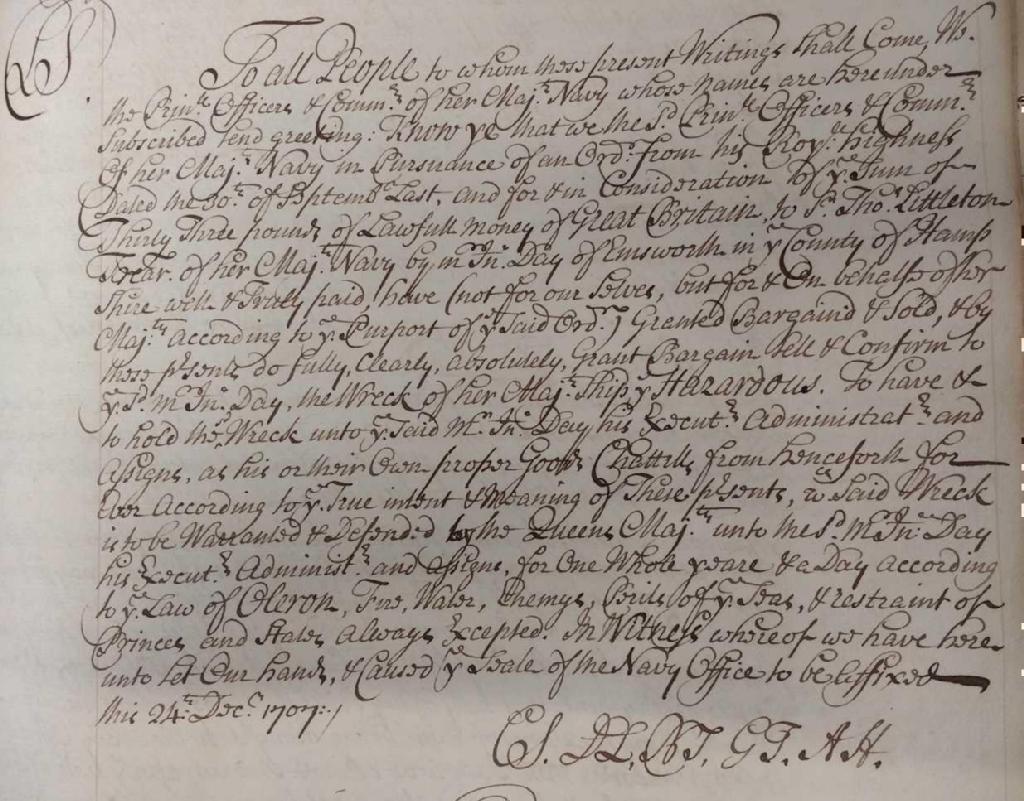 LS.
To all People to whom these present Writings shall Come, We.
the Prin:ll Officers & Comm:rs of her Maj:ts Navy whose names are hereunder
Subscribed send greeting: Know ye that we the S:d Prin:ll Officers & Comm:rs
Of her Maj:ts Navy in Pursuance of an Ord:r from his Roy:ll Highness
Dated the 30:th of Septemb:r Last, and for & in Consideration of y:e Sum of
Thirty Three pounds of Lawfull money of Great Britain, to S:r Tho:s Littleton
Trear:r of her Maj:ts Navy by m:r Jn:o Day of Emsworth in y:e County of Hamp
Shire well & Truly paid, have (not for our Selves, but for & On behalfe of her
Maj:ty According to y:e Purport of y:e Said Ord:r) Granted Bargaind & Sold, & by
these p:rsents do fully, Clearly, absolutely, Grant Bargain Sell & Confirm to
y:e S:d m:r Jn:o Day, the Wreck of her Maj:ts Ship y:e Hazardous. To have &
to hold the Wreck unto y:e Said M:r Jn:o Day his Execut:rs Administrat:rs and
Assigns, as his or their Own proper Goods Chattells from henceforth for
Ever According to y:e True intent & meaning of These p:rsents, w:ch Said Wreck
is to be Warranted & Defended by the Queens Maj:ty unto the S:d m:r Jn:o Day
his Execut:rs Administ:rs and Assigns, for One Whole yeare & a Day according
to y:e Law of Oleron, Fire, Water, Enemys, Perils of y:e Seas, & restraint of
Princes and States always Excepted. In Witness whereof we have here
unto Set Our hands, & Caused y:e Seale of the Navy Office to be Affixed
this 24:th Dec:r 1707:/
CS. DL, BT, GT. AH.